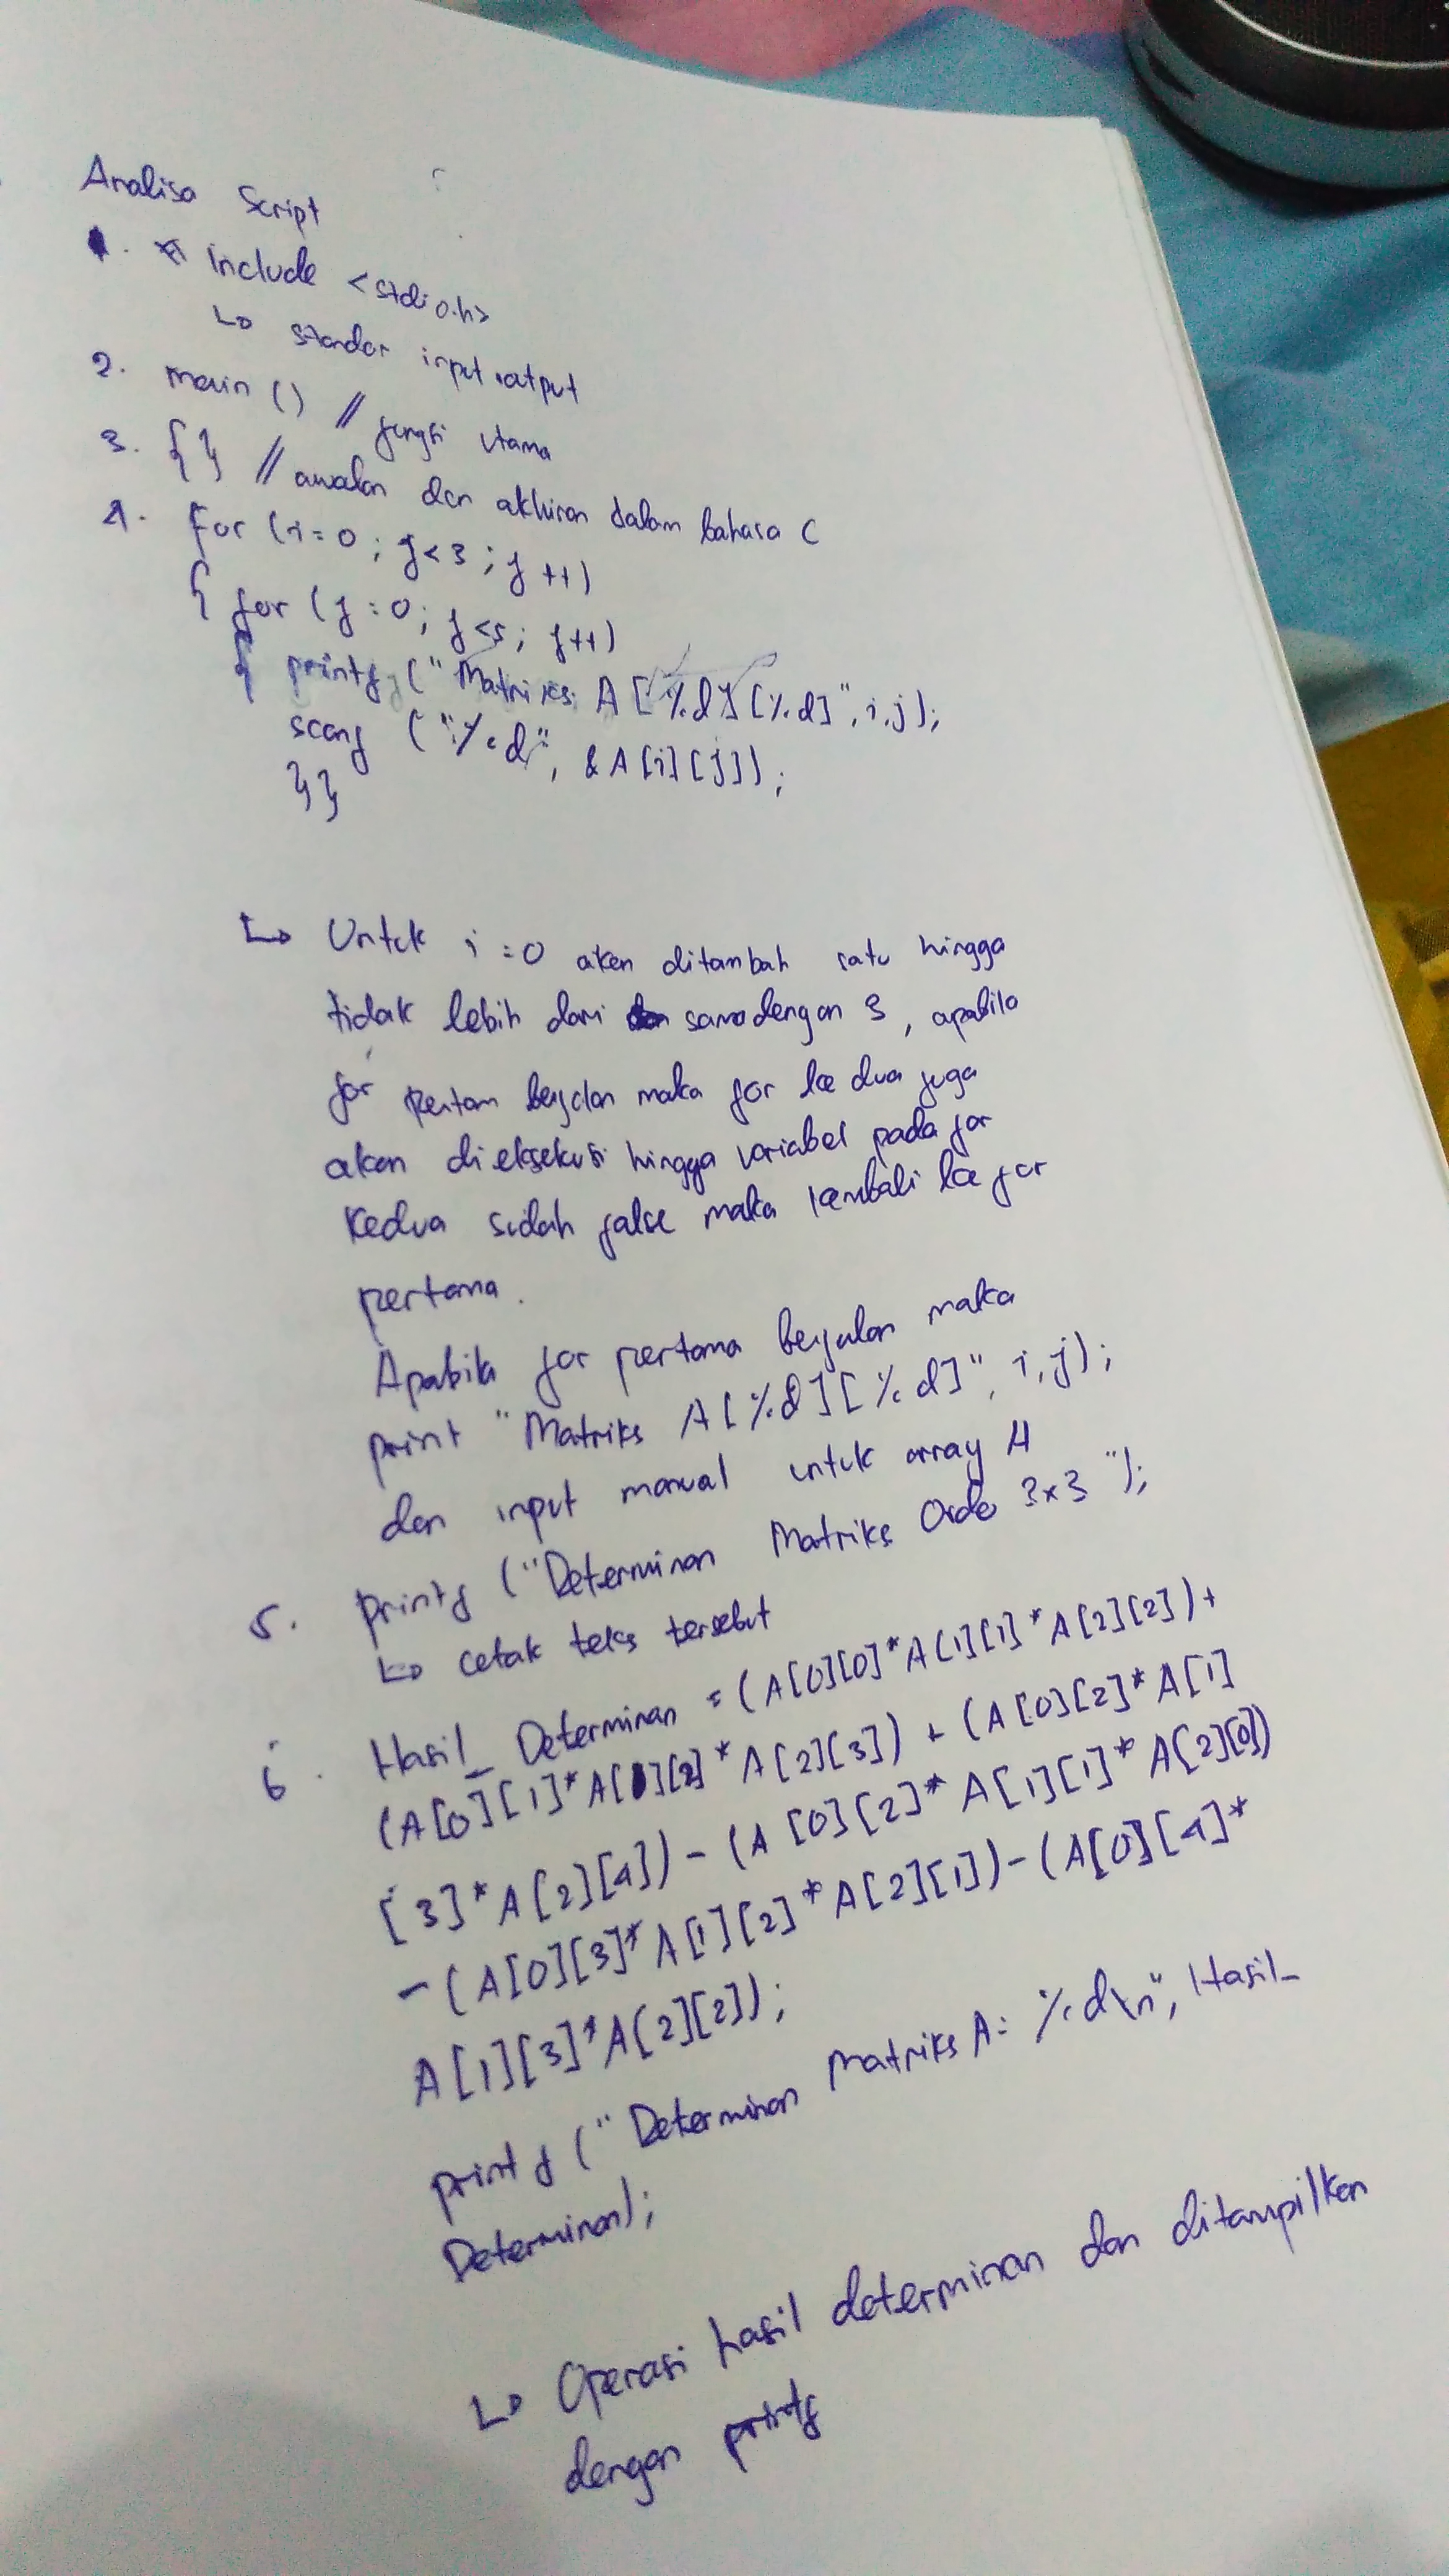 Analisa Script
1. # Include <stdio.h>
↳ standar input output
2. main () // fungsi utama
3. { } // awalan dan akhiran dalam bahasa C
4. for (i=0; j<3; j++)
{ for (j=0; j<5; j++)
{ printf ("Matriks A[%d][%d]", i,j);
scanf ("%d", &A[i][j]);
}}
↳ Untuk i=0 aken ditambah satu hingga
tidak lebih dari samadengan 3, apabila
for pertam berjalan maka for ke dua juga
akan dieksekusi hingga variabel pada for
kedua sudah false maka kembali ke for
pertama.
Apabila for pertama berjalan maka
print "Matriks A[%d][%d]", i,j);
dan input manual untuk array A
5. printf ("Determinan Matriks Ordo 3x3 ");
↳ cetak teks tersebut
6. Hasil_Determinan = (A[0][0]*A[1][1]*A[2][2])+
(A[0][1]*A[1][2]*A[2][3]) + (A[0][2]*A[1]
[3]*A[2][4]) - (A[0][2]*A[1][1]*A[2][0])
-(A[0][3]*A[1][2]*A[2][1])-(A[0][4]*
A[1][3]*A[2][2]);
printf ("Determinan Matriks A= %d\n", Hasil_
Determinan);
↳ Operasi hasil determinan dan ditampilkan
dengan printf